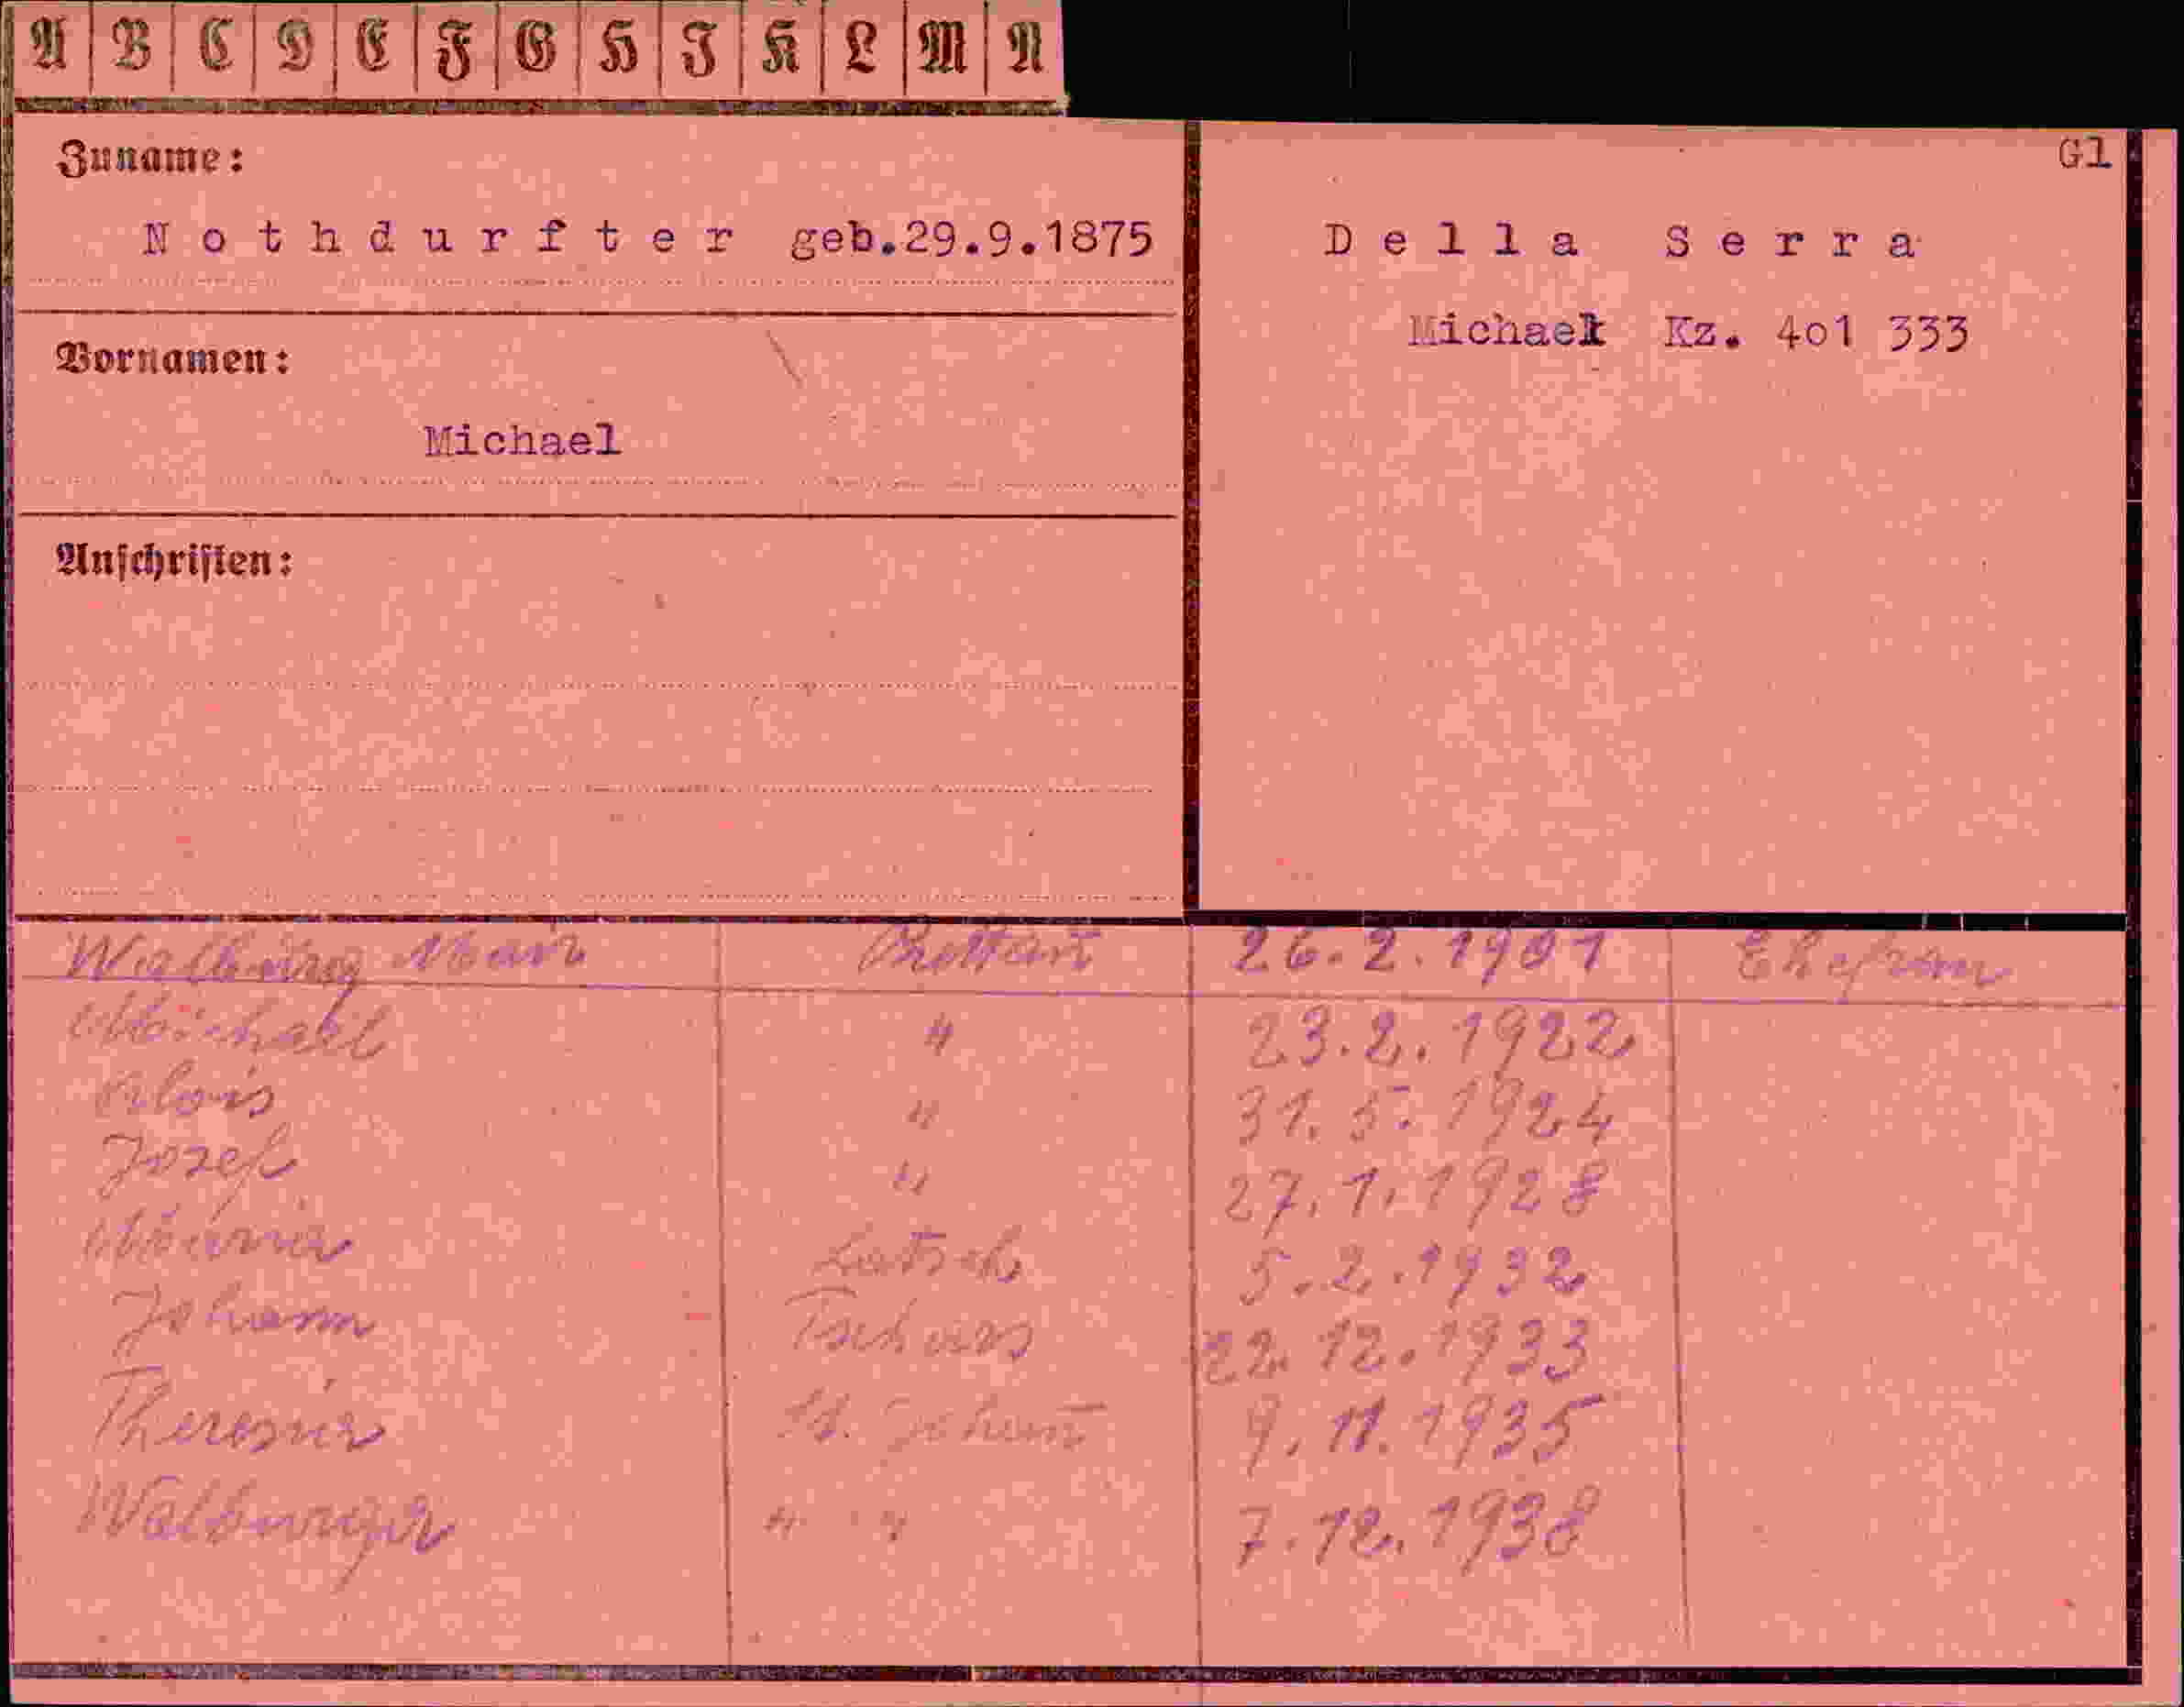 A B C D E F G H I K L M N
Zuname:
Nothdurfter geb.29.9.1875
Vornamen:
Michael
Anschriften:
Gl
Della Serra
Michael Kz. 4o1 333
Walburg Mair 26.2.1901 Ehefrau
Michael " 23.2.1922
Alois " 31.5.1924
Josef " 27.1.1928
Maria Latsch 5.2.1932
Johann Tschars 22.12.1933
Theresia 9.11.1935
Walburga " " 7.12.1938